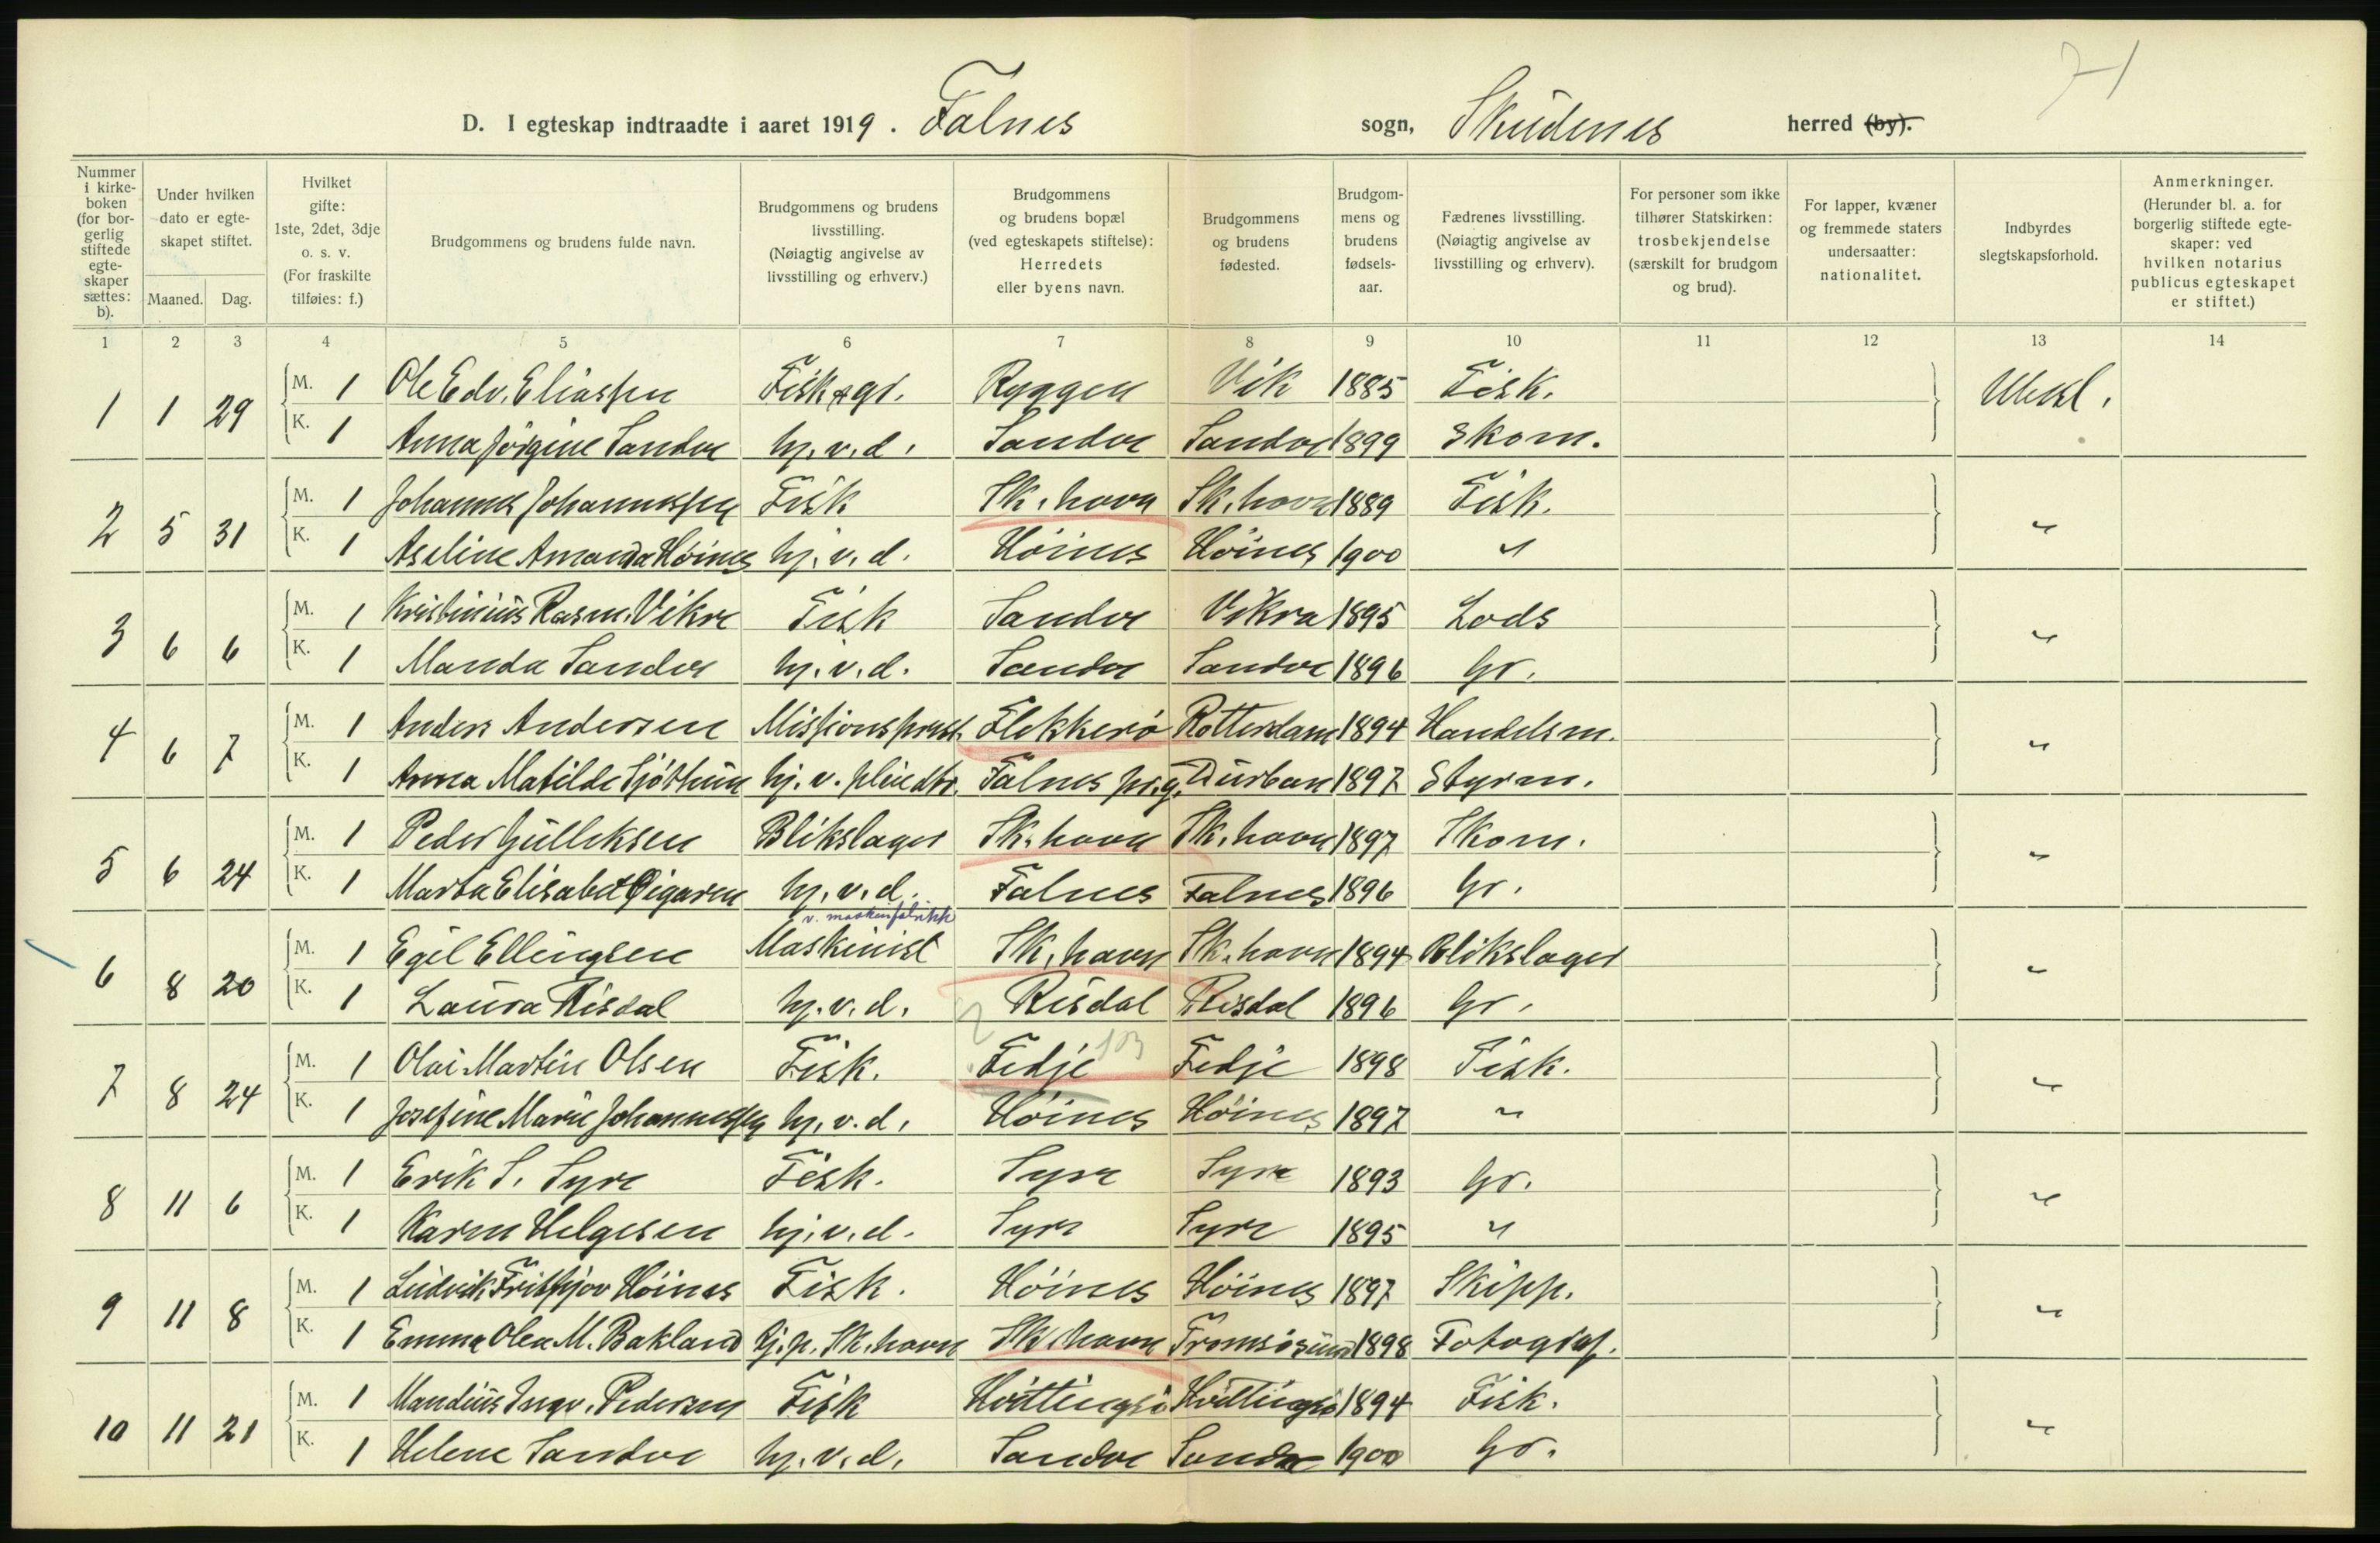 71
D. I egteskap indtraadte i aaret 1919. Falnes sogn, Skudenes herred (by).
Nummer i kirkeboken (for borgerlig stiftede egteskaper sættes: b).
Under hvilken dato er egteskapet stiftet.
Maaned. Dag.
Hvilket gifte: 1ste, 2det, 3dje o. s. v. (For fraskilte tilføies: f.)
Brudgommens og brudens fulde navn.
Brudgommens og brudens livsstilling. (Nøiagtig angivelse av livsstilling og erhverv.)
Brudgommens og brudens bopæl (ved egteskapets stiftelse): Herredets eller byens navn.
Brudgommens og brudens fødested.
Brudgommens og brudens fødselsaar.
Fædrenes livsstilling. (Nøiagtig angivelse av livsstilling og erhverv).
For personer som ikke tilhører Statskirken: trosbekjendelse (særskilt for brudgom og brud).
For lapper, kvæner og fremmede staters undersaatter: nationalitet.
Indbyrdes slegtskapsforhold.
Anmerkninger. (Herunder bl. a. for borgerlig stiftede egteskaper: ved hvilken notarius publicus egteskapet er stiftet.)
1 2 3 4 5 6 7 8 9 10 11 12 13 14
1 1 29 M. 1 Ole Edv. Eliassen Fisk & gr. Ryggen Vik 1885 Fisk. Ubesl.
K. 1 Anna Jørgine Sandve hj. v. d. Sandve Sandve 1899 Skom.
2 5 31 M. 1 Johannes Johannessen Fisk Sk.havn Sk.havn 1889 Fisk. "
K. 1 Aseline Amanda Høines hj. v. d. Høines Høines 1900 "
3 6 6 M. 1 Kristinius Rasm. Vikre Fisk Sandve Vikra 1895 Lods "
K. 1 Manda Sandve hj. v. d. Sandve Sandve 1896 Gr.
4 6 7 M. 1 Anders Andersen Missionsprest Flekkerø Rotterdam 1894 Handelsm. "
K. 1 Anna Matilde Sjøthun hj. v. pleiedtr. Falnes pr.g. Durban 1897 Styrm.
5 6 24 M. 1 Peder Gulleksen Blikslager Sk.havn Sk.havn 1897 Skom. "
K. 1 Marta Elisabet Øigaren hj. v. d. Falnes Falnes 1896 Gr.
v. maskinfabrikk
6 8 20 M. 1 Egil Ellingsen Maskinist Sk.havn Sk.havn 1894 Blikslager "
K. 1 Laura Risdal hj. v. d. Risdal Risdal 1896 Gr.
7 8 24 M. 1 Olai Martin Olsen Fisk. Fedje 103 Fedje 1898 Fisk. "
K. 1 Josefine Marie Johannessen hj. v. d. Høines Høines 1897 "
8 11 6 M. 1 Erik S. Syre Fisk. Syre Syre 1893 Gr. "
K. 1 Karen Helgesen hj. v. d. Syre Syre 1895 "
9 11 8 M. 1 Ludvik Frithjov Høines Fisk. Høines Høines 1897 Skipp. "
K. 1 Emma Olea M. Bakland tj.p. Sk.havn Sk.havn Tromsøsund 1898 Fotograf.
10 11 21 M. 1 Mandius Ingv. Pedersen Fisk Hvittingsø Hvittingsø 1894 Fisk. "
K. 1 Helene Sandve hj. v. d. Sandve Sandve 1900 Gr.